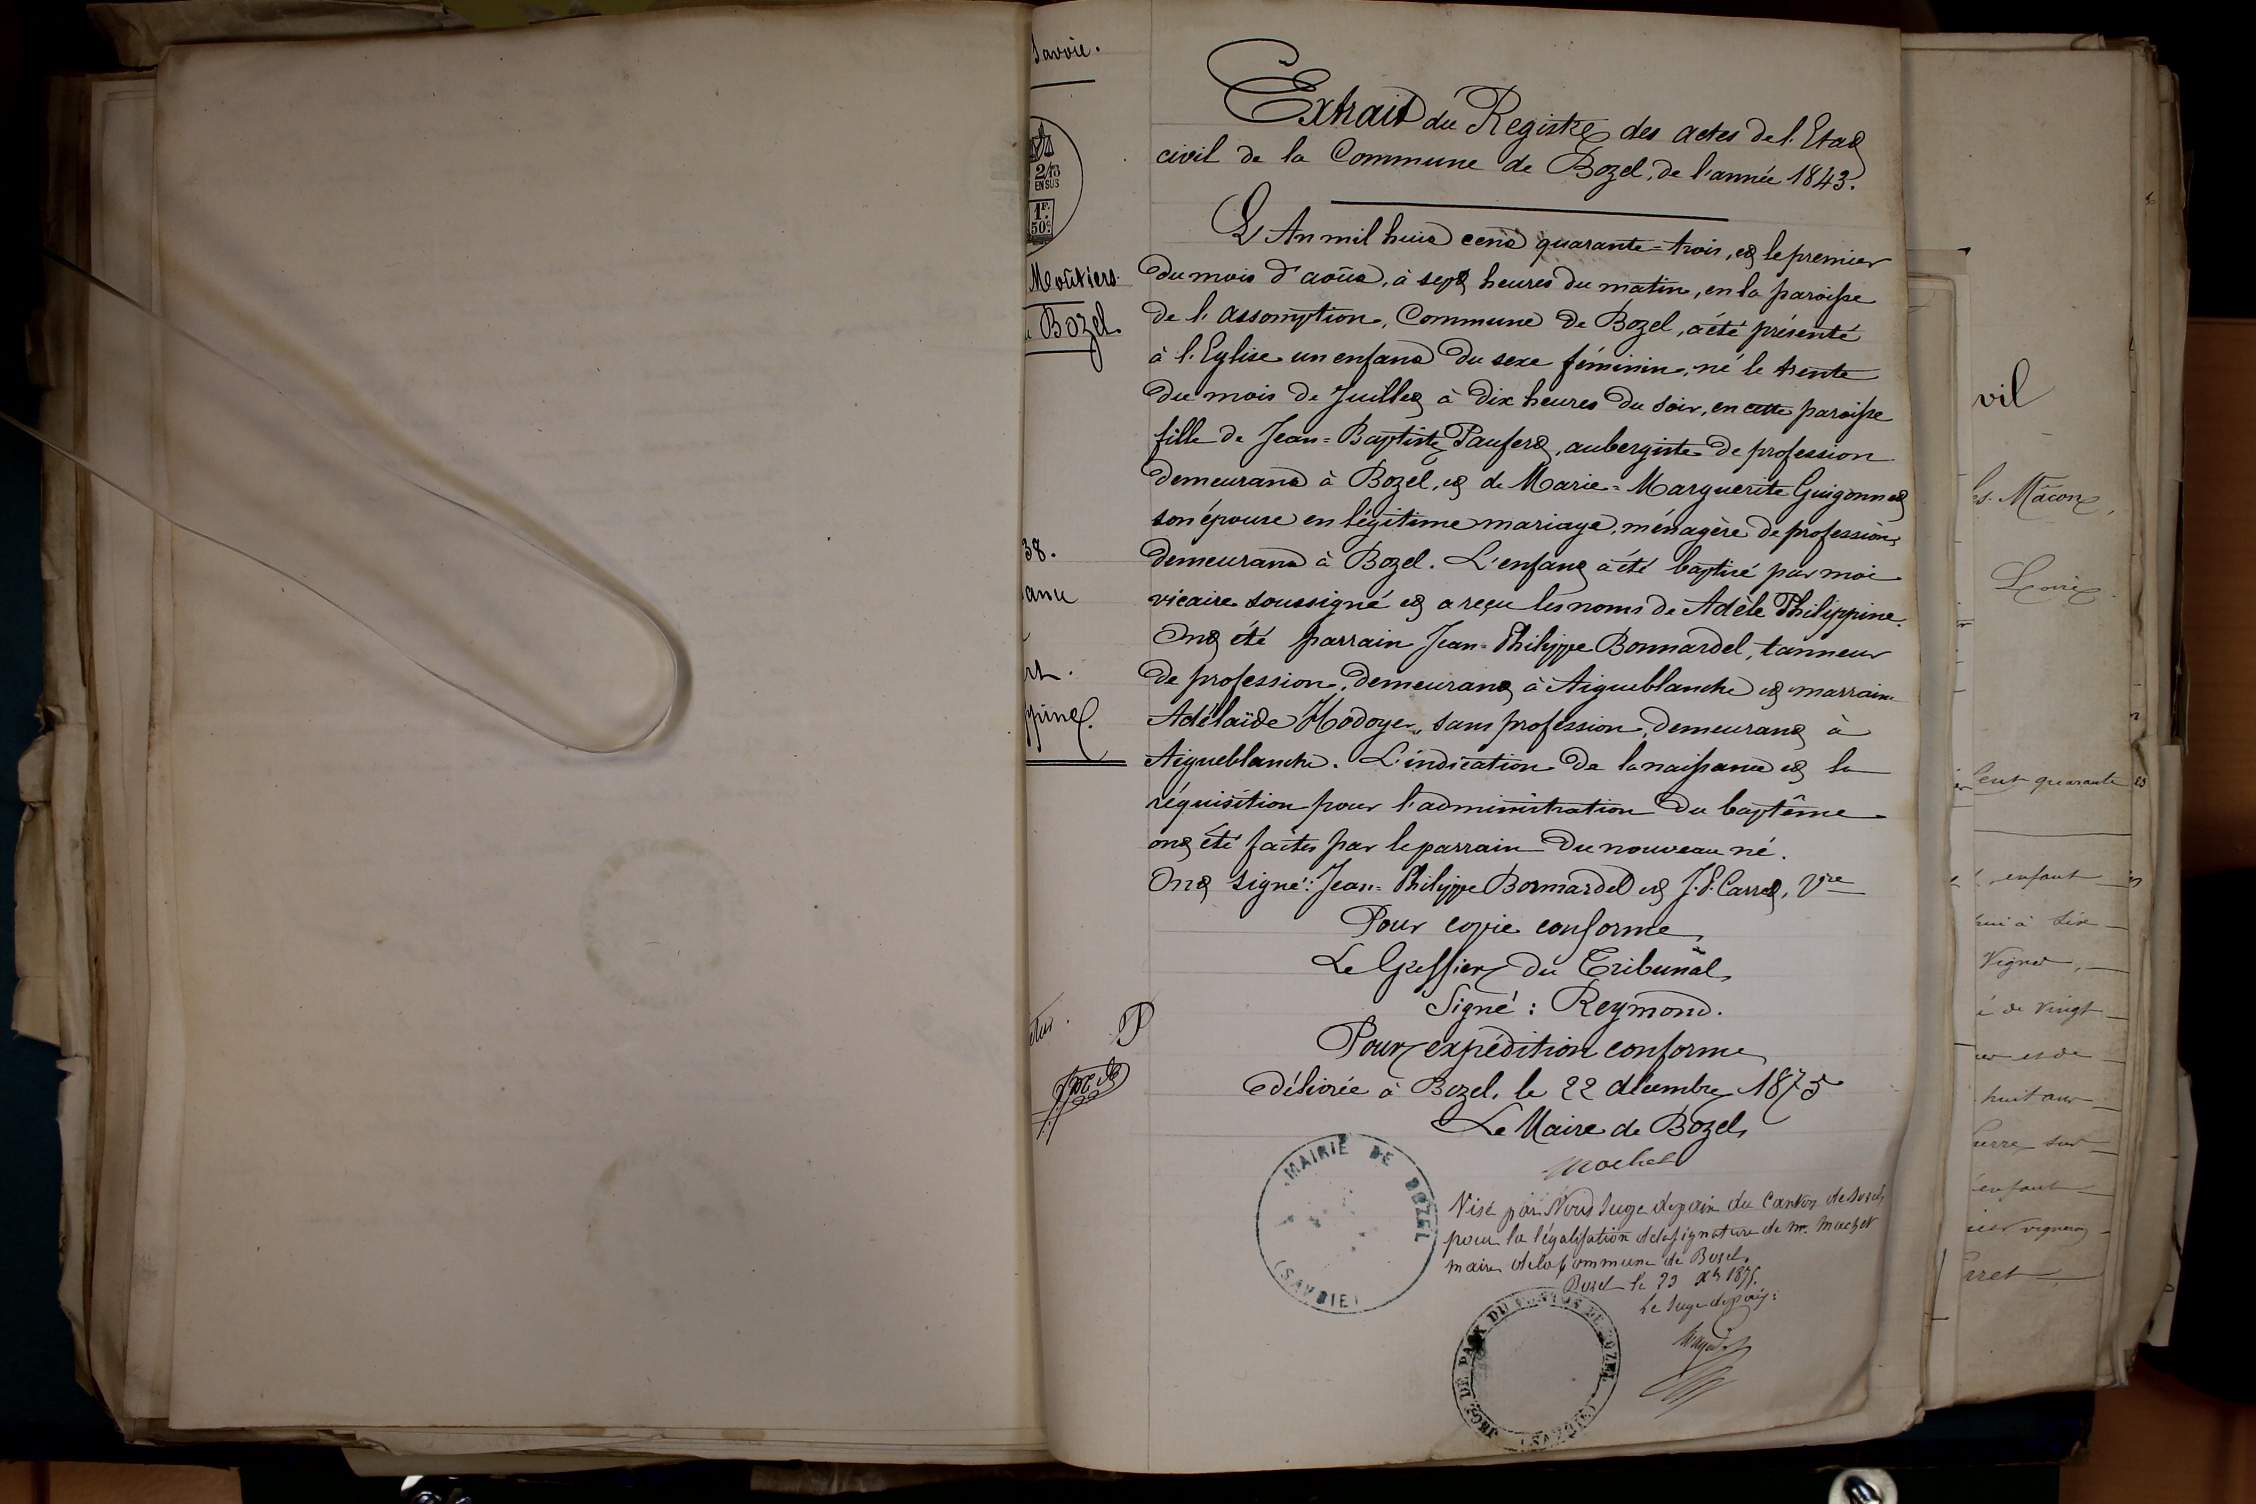 Savoie.
2/13
EN SUS
1F.
50c
Moûtiers
Bozel.
38.
ance
rt.
ppine.
Extrait du Registre des actes de l'Etat
civil de la Commune de Bozel, de l'année 1843.
L'An mil huit cent quarante=trois, et le premier
du mois d'août, à sept heures du matin, en la paroisse
de l'assomption, Commune de Bozel, a été présenté
à l'Eglise un enfant du sexe féminin, né le trente
du mois de Juillet à dix heures du soir, en cette paroisse
fille de Jean=Baptiste Paufert, aubergiste de profession
demeurant à Bozel, et de Marie=Marguerite Guigonnet
son épouse en légitime mariage, ménagère de profession,
demeurant à Bozel. L'enfant a été baptisé par moi
vicaire soussigné et a reçu les noms de Adèle Philippine.
Ont été parrain Jean=Philippe Bonnardel, tanneur
de profession, demeurant à Aigueblanche et marraine
Adélaïde Modoyer, sans profession, demeurant à
Aigueblanche. L'indication de la naissance et la
réquisition pour l'administration du baptême
ont été faites par le parrain du nouveau né.
Ont signé: Jean=Philippe Bonnardel et J.P. Carret, Vre
Pour copie conforme
Le Greffier du Tribunal,
Signé : Reymond.
Pour expédition conforme
délivrée à Bozel, le 22 décembre 1875
Le Maire de Bozel,
Machet
MAIRIE DE BOZEL
(SAVOIE)
Visé par Nous Juge de paix du Canton de Bozel,
pour la légalisation de la signature de Mr. Machet
maire de la Commune de Bozel.
Bozel le 23 Xbre 1875.
Le Juge de paix:
JUGE DE PAIX DU CANTON DE BOZEL (SAVOIE)
vil
Mâcon,
Loire
Cent quarante
enfant
Vignes,
é de vingt
huit ans
enfant
vigneron